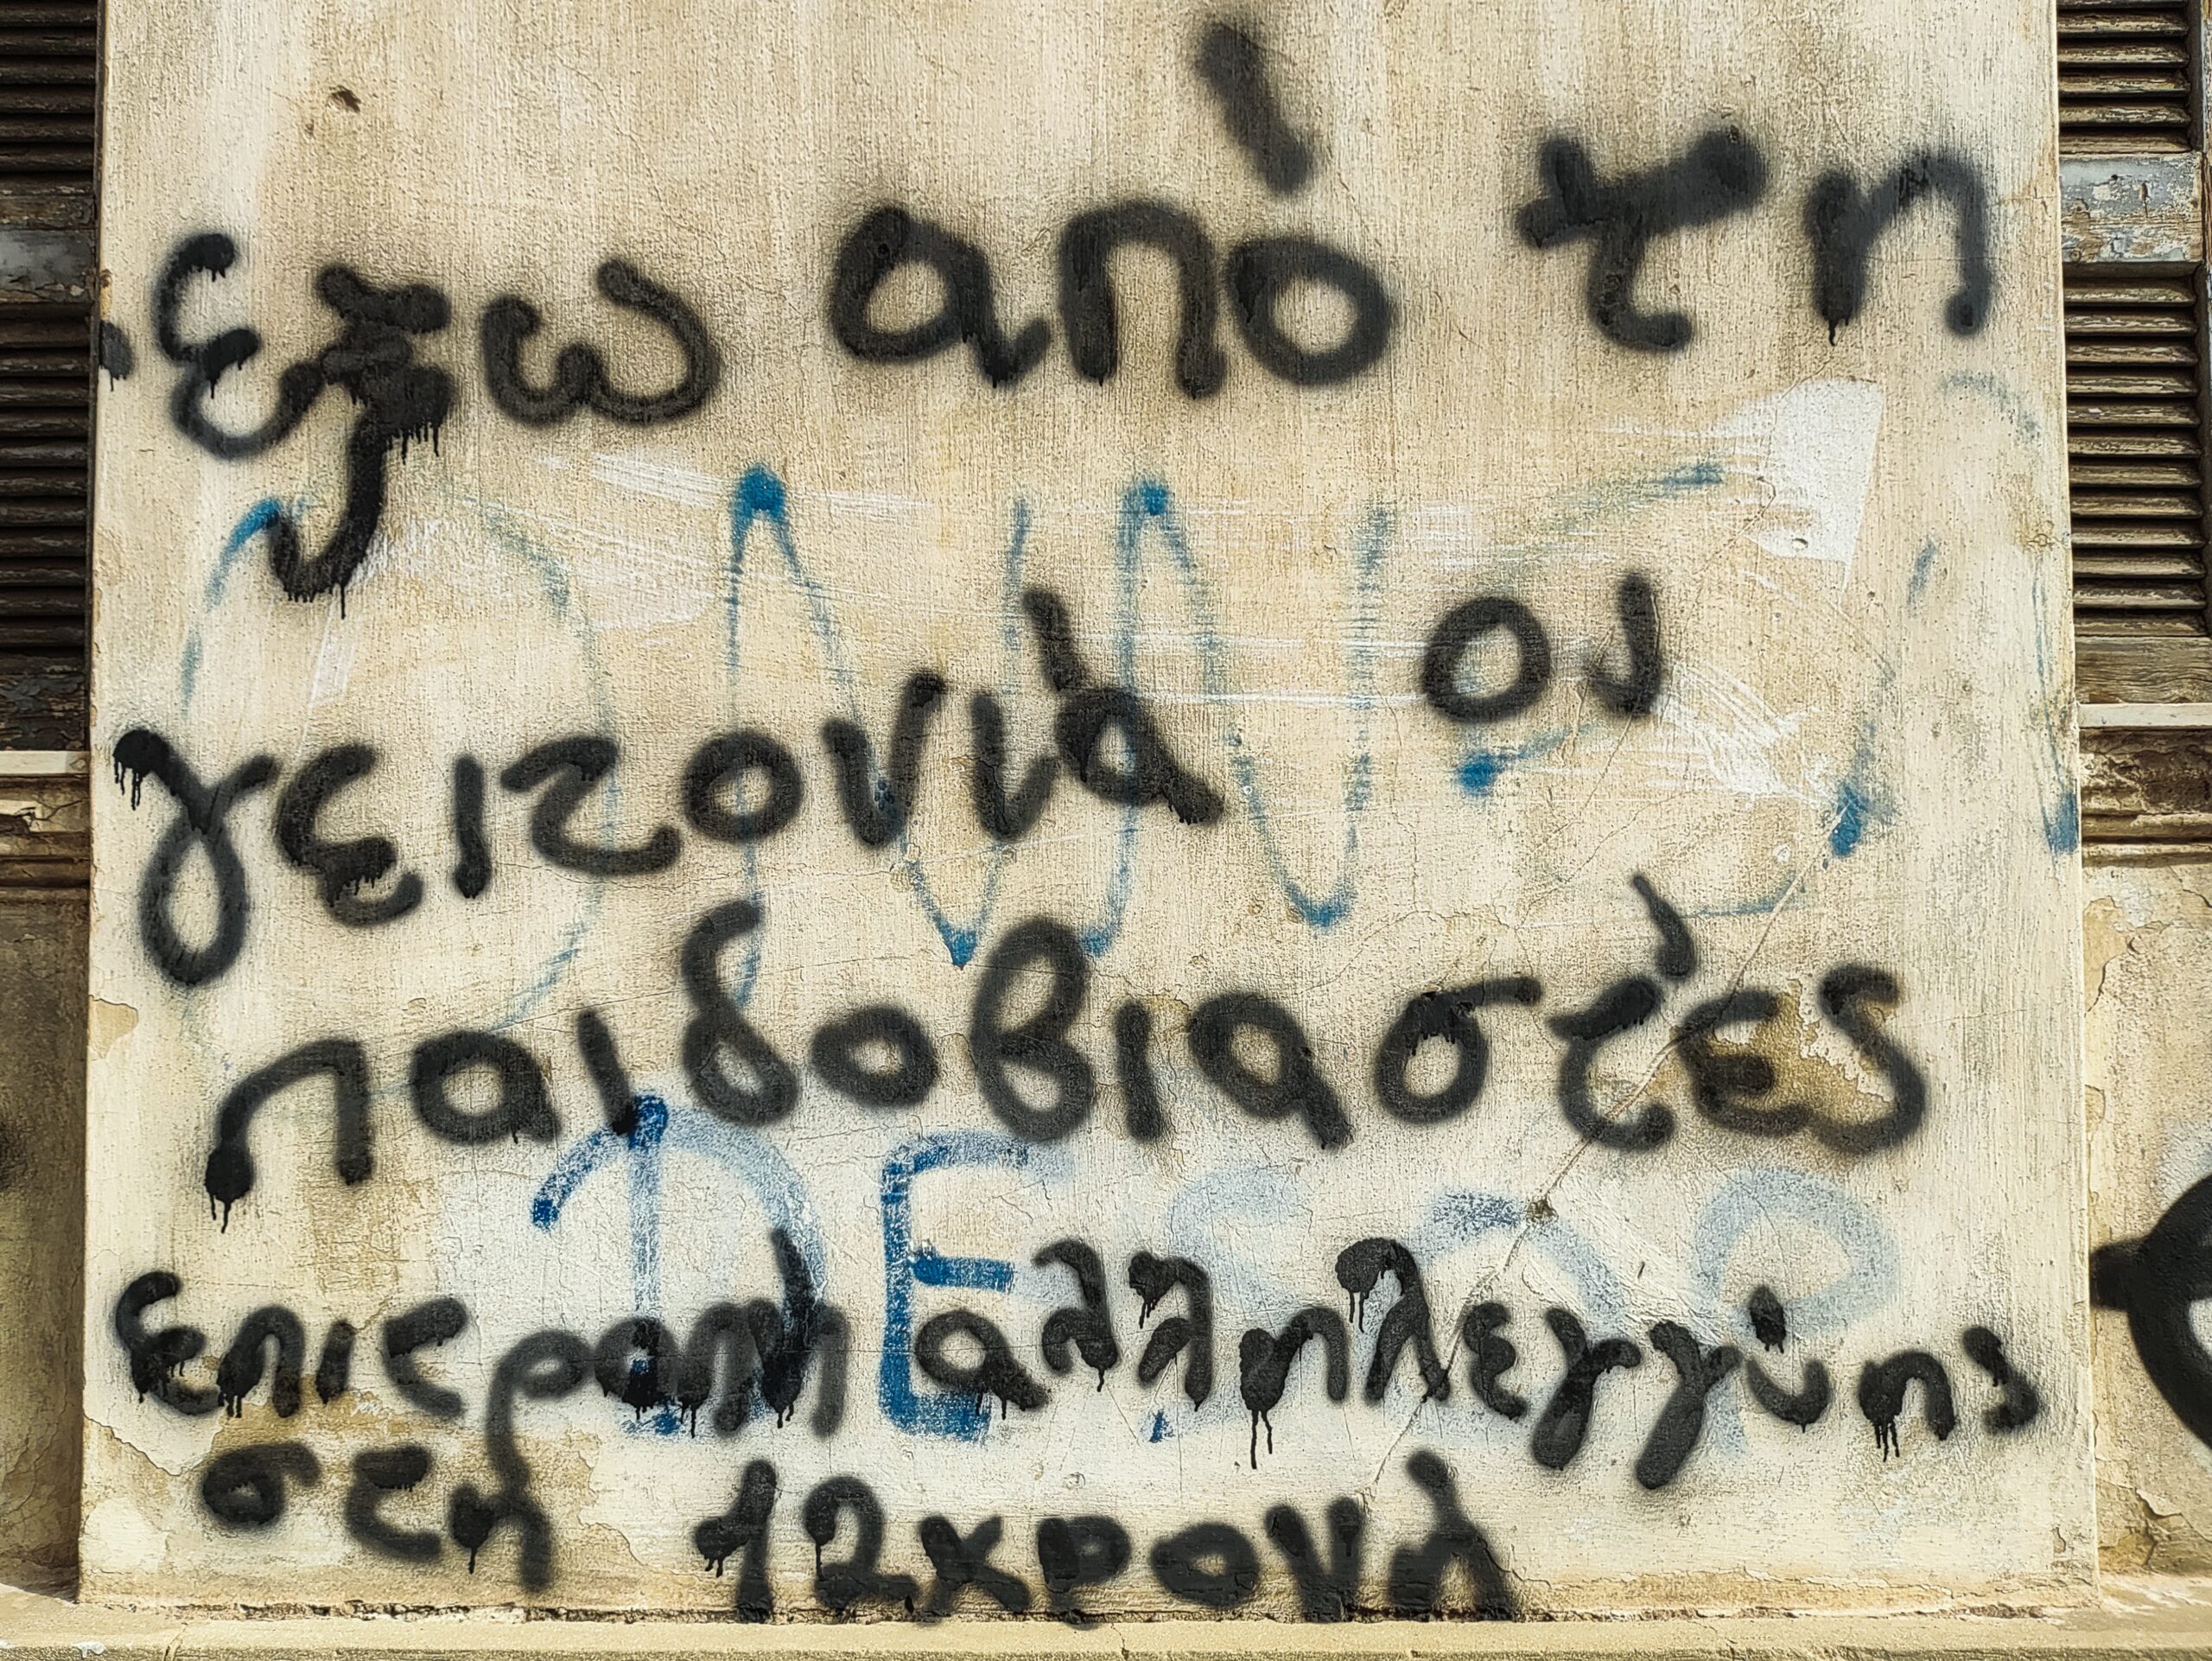 εξω από τη
γειτονιά οι
παιδοβιαστές
επιτροπή αλληλεγγύης
στη 12χρονή